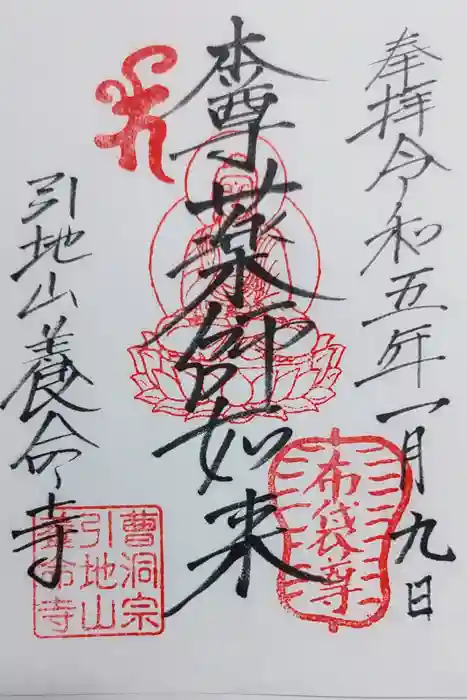 奉拝令和五年一月九日
本尊薬師如来
布袋尊
引地山養命寺
曹洞宗
引地山
養命寺